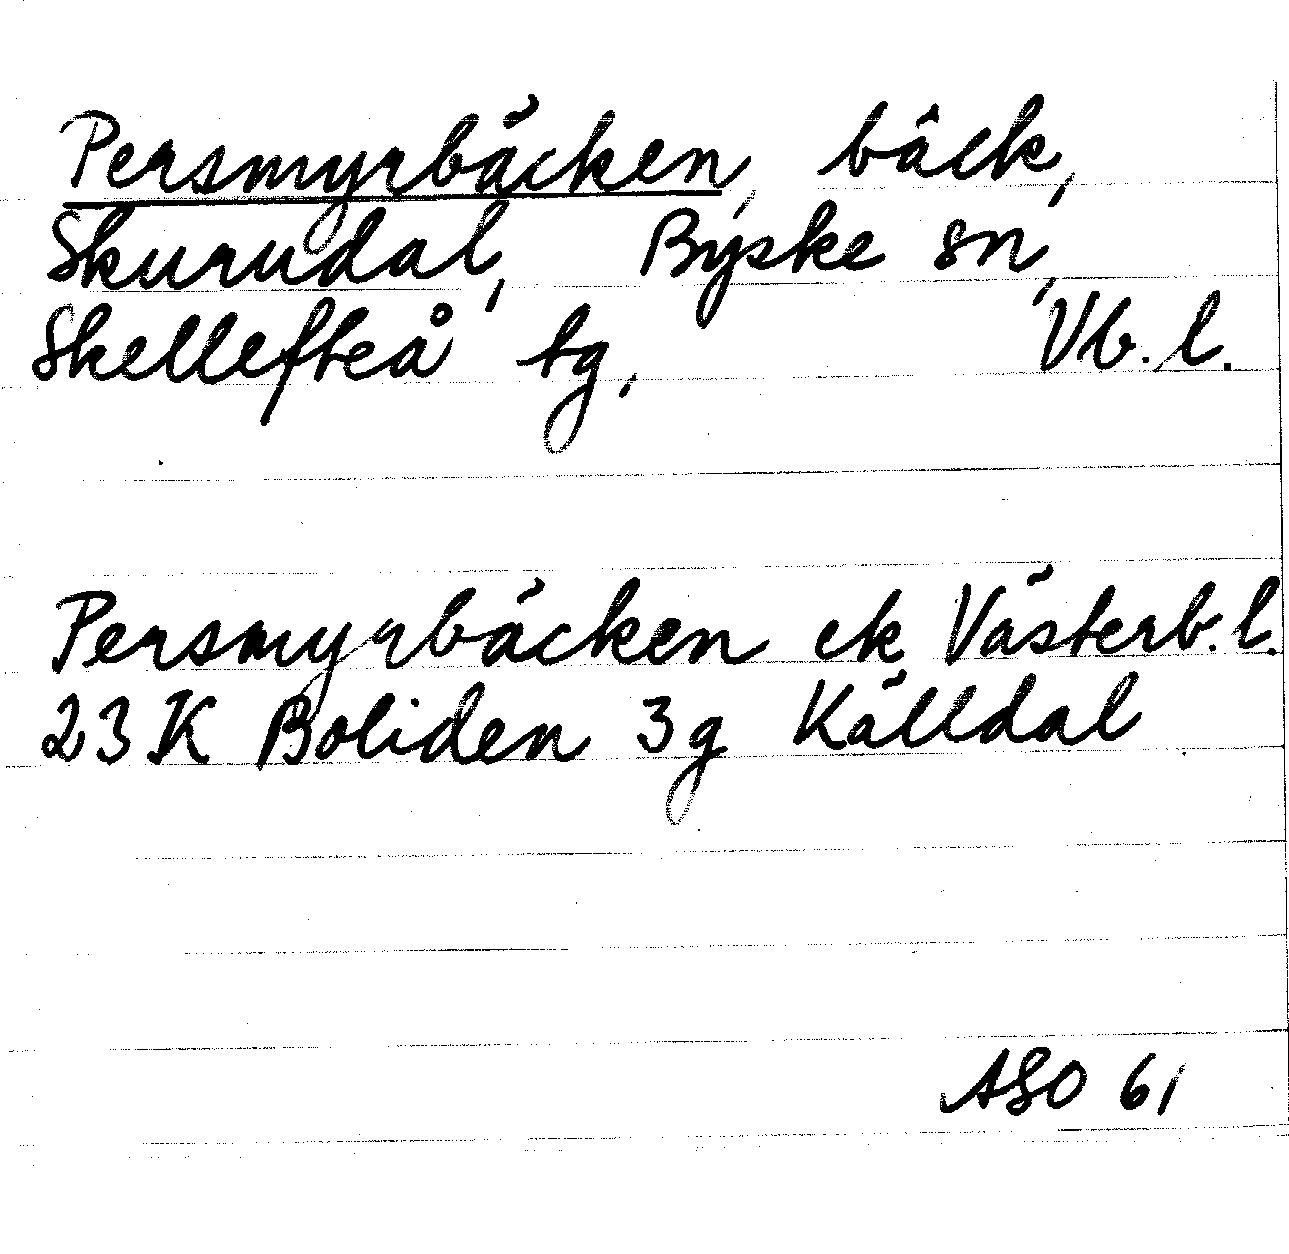 Persmyrbäcken, bäck,
Skurudal, Byske sn,
Skellefteå tg, Vb. l.
Persmyrbäcken ek Västerb. l.
23 K Boliden 3g Källdal
ASO 61